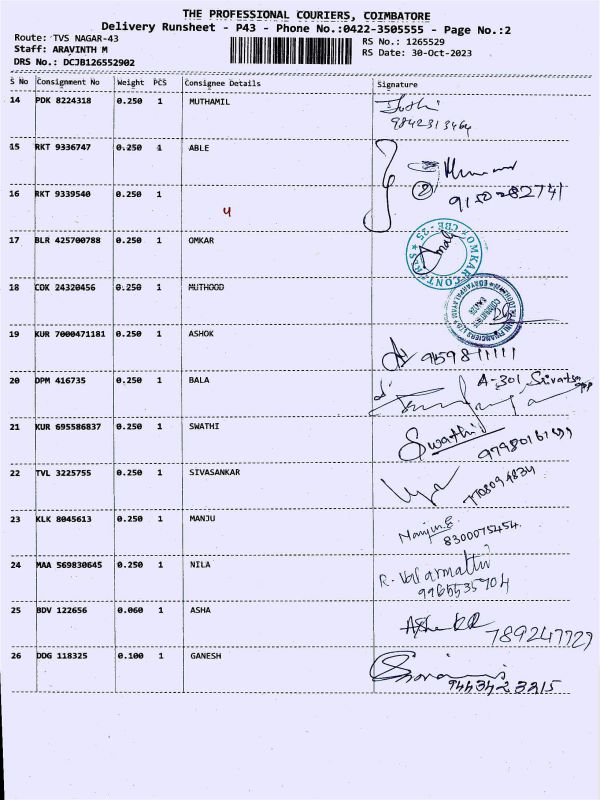 THE PROFESSIONAL COURIERS, COIMBATORE
Delivery Runsheet - P43 - Phone No.:0422-3505555 - Page No.:2
Route: TVS NAGAR-43
RS No.: 1265529
Staff: ARAVINTH M
RS Date: 30-Oct-2023
DRS No.: DCJB126552902
S No Consignment No Weight PCS Consignee Details Signature
14 PDK 8224318 0.250 1 MUTHAMIL
9842313464
15 RKT 9336747 0.250 1 ABLE
16 RKT 9339540 0.250 1
2
9150282741
4
17 BLR 425700788 0.250 1 OMKAR
OMKAR CONT
CBE-25
18 COK 24320456 0.250 1 MUTHOOD
19 KUR 7000471181 0.250 1 ASHOK
20 DPM 416735 0.250 1 BALA
A-301, Srivatsa
21 KUR 695586837 0.250 1 SWATHI
Swathi
22 TVL 3225755 0.250 1 SIVASANKAR
7708094834
23 KLK 8045613 0.250 1 MANJU
8300075454
24 MAA 569830645 0.250 1 NILA
9965535704
25 BDV 122656 0.060 1 ASHA
789247729
26 DDG 118325 0.100 1 GANESH
9443423215